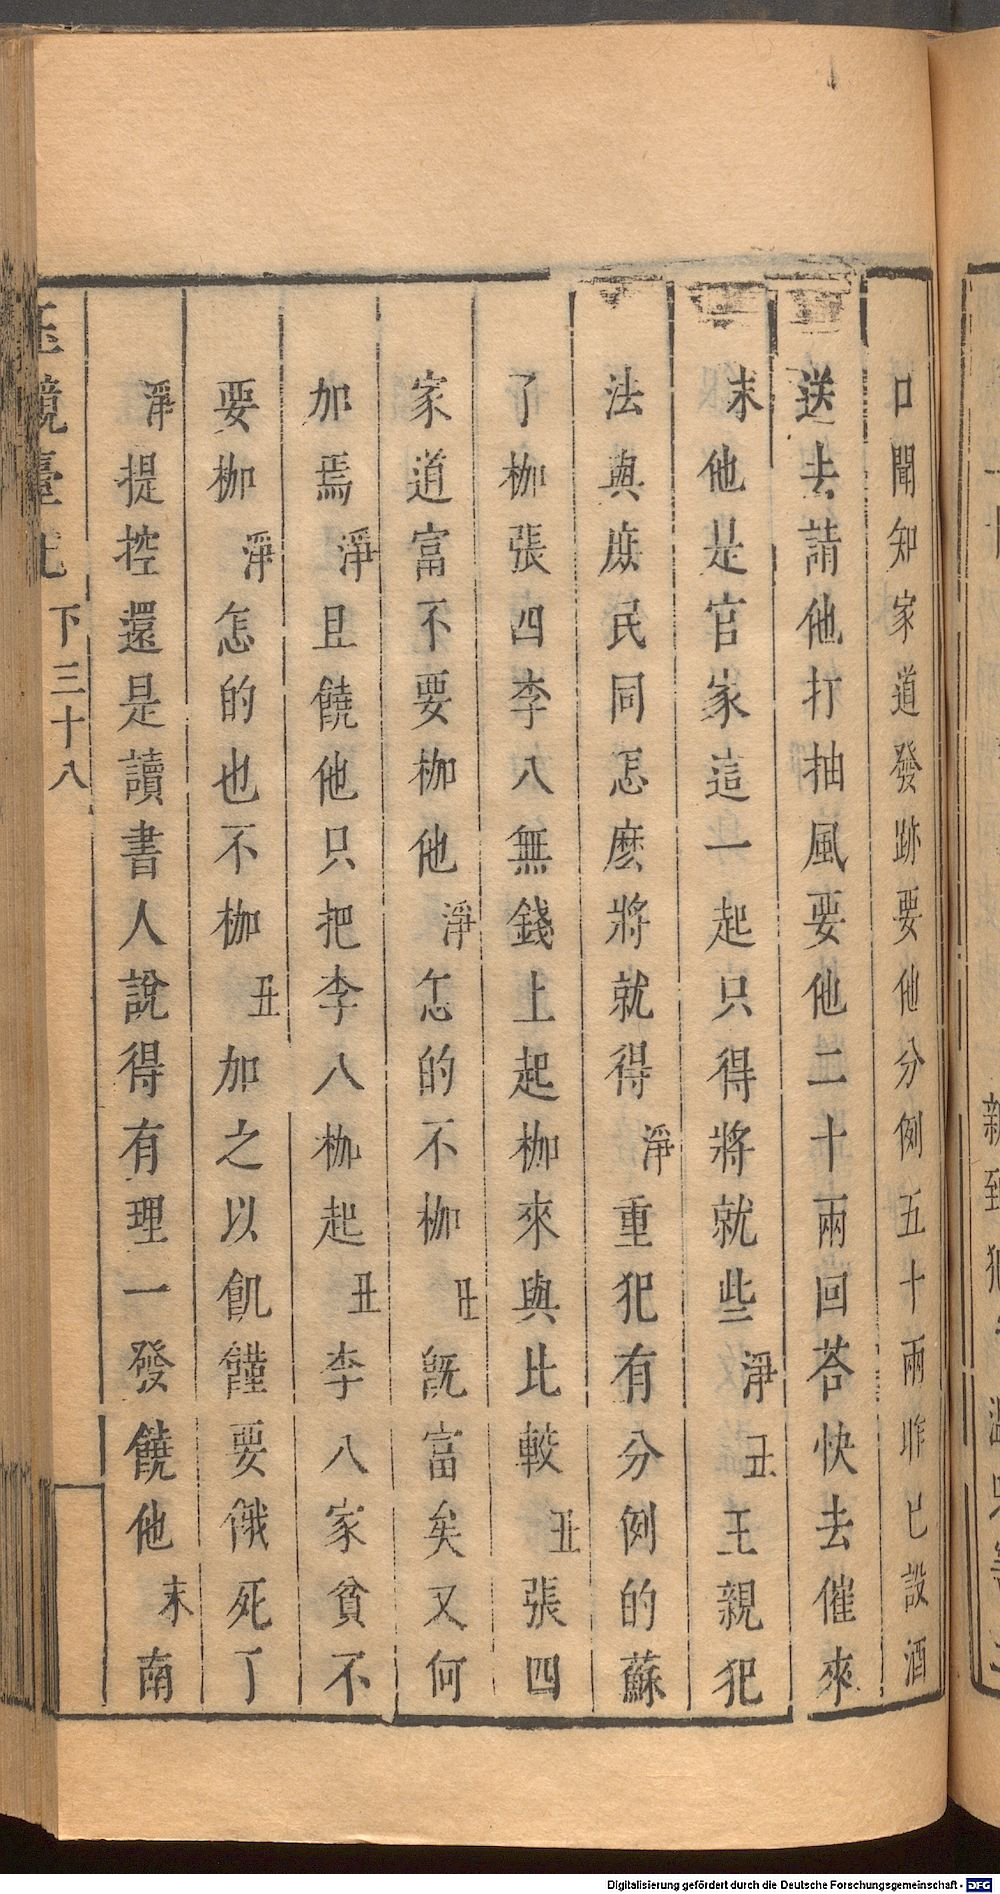 口聞知家道發跡要他分例五十兩昨已設酒
送去請他打抽風要他二十兩回荅快去催來
末他是官家這一起只得將就些淨丑王親犯
法與庶民同怎麽將就得淨重犯有分例的蘇
了枷張四李八無錢上起枷來與比較丑張四
家道富不要枷他淨怎的不枷丑旣富矣又何
加焉淨且饒他只把李八枷起丑李八家貧不
要枷淨怎的也不枷丑加之以飢饉要俄死了
淨提控還是讀書人說得有理一發饒他末南
玉鏡臺記
下三十八
Digitalisierung gefördert durch die Deutsche Forschungsgemeinschaft - DFG